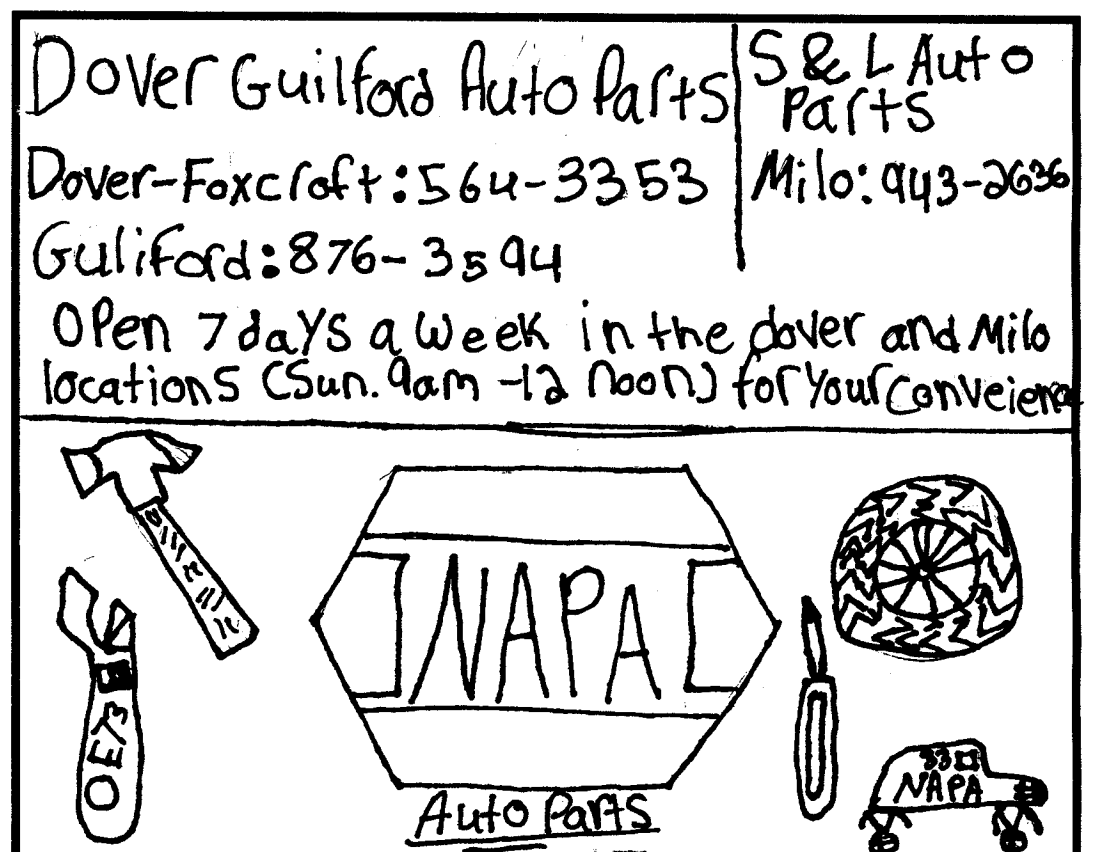 Dover Guilford Auto Parts
Dover-Foxcroft: 564-3353
Guliford: 876-3594
S & L Auto
Parts
Milo: 943-2636
Open 7 days a week in the dover and Milo
locations (Sun. 9am -12 Noon) for your Conveience
NAPA
Auto Parts
33
NAPA